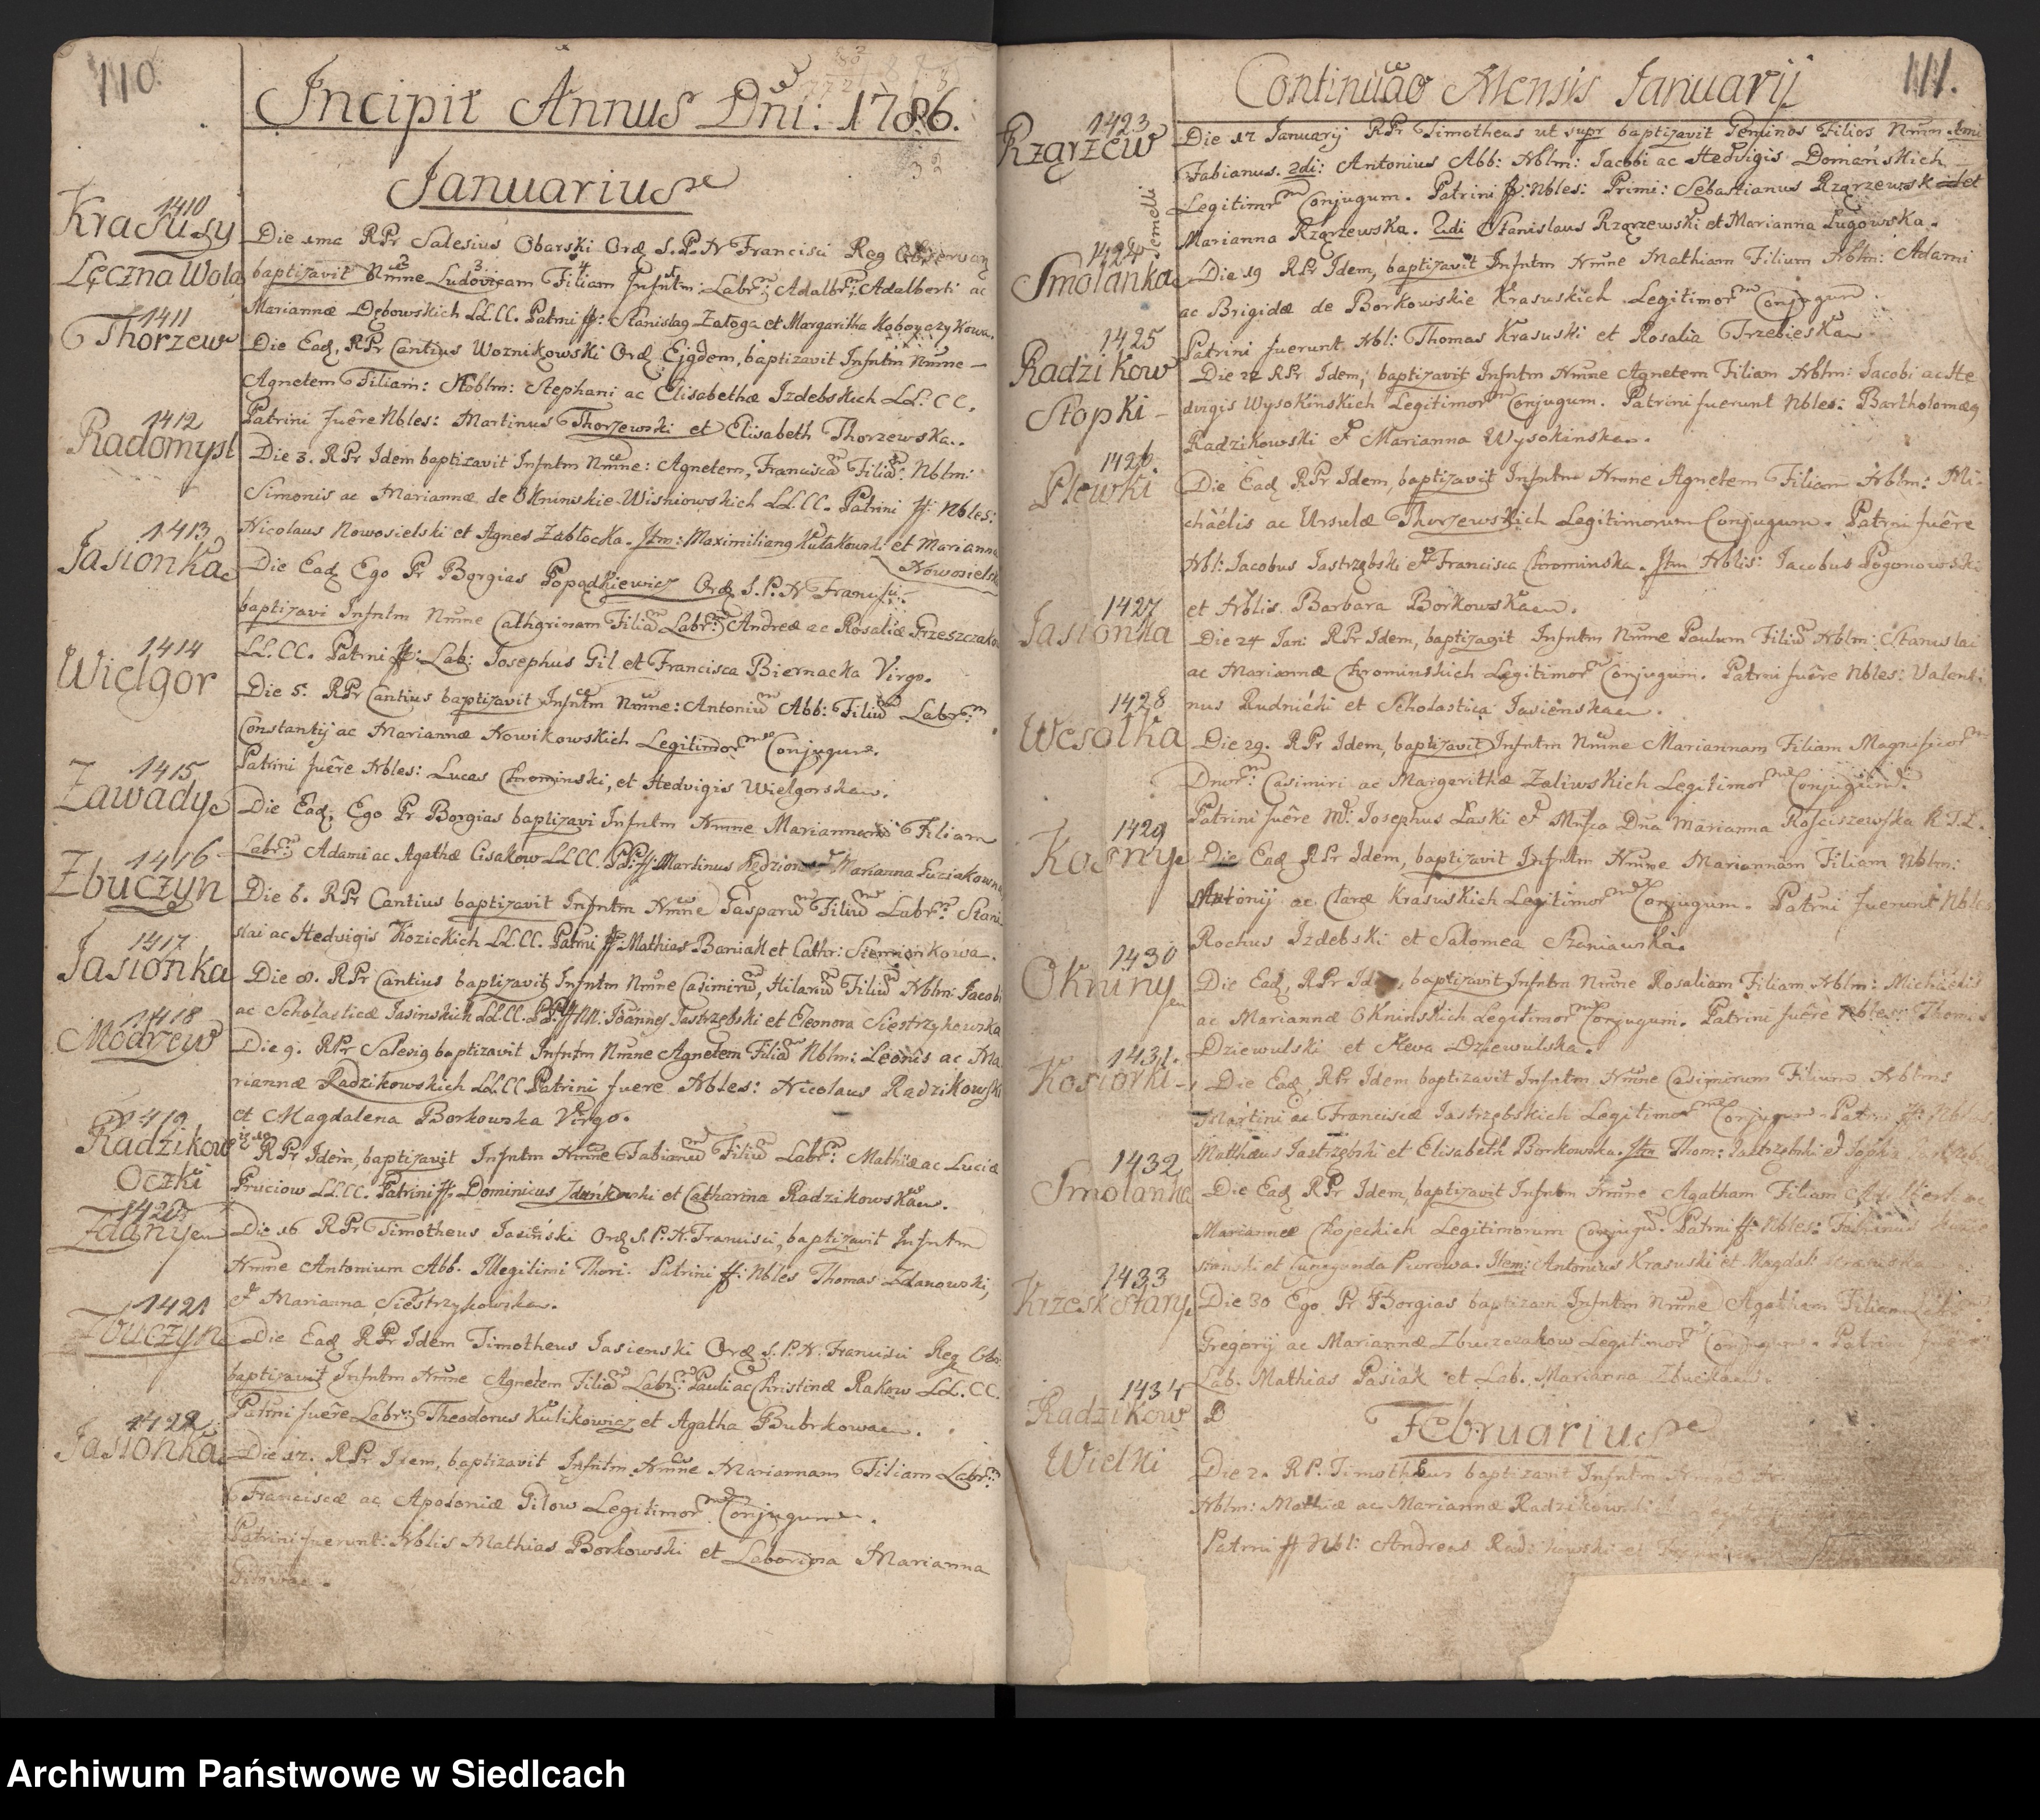 110.
Incipit Annus Dni: 1786.
Januarius
1410
Krasusy
Łęczna Wola
Die 1ma RPr Salesius Obarski Ord S.P.N Francisci Reg Observan
baptizavit Nmne Ludovicam Filiam Infntm: Labr: Adalbr: Adalberti ac
Mariannæ Dębowskich LL.CC. Patrni ff: Stanislaq Załoga et Margaritha
1411
Thorzew
Die Ead, RPr Cantius Woznikowski Ord Ejqdem, baptizavit Infntm Nmne
Agnetem Filiam: Noblm: Stephani ac Elisabethæ Izdebskich LL.CC.
Patrini fuêre Nbles: Martinus Thorzewski et Elisabeth Thorzewska.
1412
Radomysl
Die 3. RPr Idem baptizavit Infntm Nmne: Agnetem, Francisca Filia: Nblm:
Simonis ac Mariannæ de Okninskie Wisniowskich LL.CC. Patrini ff Nbles:
Nicolaus Nowosielski et Agnes Zabłocka. Itm: Maximilianq Kułakowski et Marianna
Nowosielsk
1413
Jasionka
Die Ead Ego Pr Borgias Popądkiewicz Ord S.P.N Franci
baptizavi Infntm Nmne Catharinam Filia Labr: Andreæ ac Rosaliæ
LL.CC. Patrni ff: Lab: Josephus Gil et Francisca Biernacka Virgo.
1414
Wielgor
Die 5. RPr Cantius baptizavit Infntm Nmne: Antoniu Abb: Filiu Labr
Constantij ac Mariannæ Nowikowskich Legitimor Conjugum.
Patrini fuêre Nbles: Lucas Chrominski, et Hedvigis Wielgorska.
1415
Zawady
Die Ead; Ego Pr Borgias baptizavi Infntm Nmne Mariannam Filiam
Labr: Adami ac Agathæ Cisakow LL.CC. PP:ff: Martinus et Marianna Guziakowna
1416
Zbuczyn
Die 6. RPr Cantius baptizavit Infntm Nmne Gasparu Filiu Labr: Stani
slai ac Hedvigis Kozickich LL.CC. Patrni ff: Mathias Baniak et Cathr: Siemionkowa.
1417
Jasionka
Die 8. RPr Cantius baptizavit Infntm Nmne Casimiru, Hilariu Filiu Nblm: Jacobi
ac Scholasticæ Jasinskich LL.CC. PP:ff NN: Joannes Jastrzębski et Eleonora Siestrzykowska
1418
Modrzew
Die 9. RPr Salesiq baptizavit Infntm Nmne Agnetem Filia Nblm: Leonis ac Ma
riannæ Radzikowskich LL.CC Patrini fuere Nbles: Nicolaus Radzikowski
et Magdalena Borkowska Virgo.
1419
Radzikow
Oczki
RPr Idem, baptizavit Infntm Nmne Fabianu Filiu Labr: Mathiæ ac Luciæ
Pruciow LL.CC. Patrini ff. Dominicus et Catharina Radzikowska.
1420
Zdany
Die 16 RPr Timotheus Jasiński Ord S.P.N. Francisci, baptizavit Infntm
Nmne Antonium Abb. Illegitimi Thori. Patrini ff: Nbles Thomas Zdanowski,
et Marianna Siestrzykowska.
1421
Zbuczyn
Die Ead RPr Idem Timotheus Jasienski Ord S.P.N. Francisci Reg Obs:
baptizavit Infntm Nmne Agnetem Filia Labr: Pauli ac Christinæ Rakow LL.CC.
Patrini fuêre Labr: Theodorus Kulikowicz et Agatha Bubrkowa.
1422
Jasionka
Die 17. RPr Idem, baptizavit Infntm Nmne Mariannam Filiam Labr
Franciscæ ac Apoloniæ Gilow Legitimor Conjugum.
Patrini fuerunt: Nblis Mathias Borkowski et Laboriosa Marianna
111.
Continuao Mensis Januarij
1423
Rzązew
Gemelli
Die 17 Januarij RPr Timotheus ut supr baptizavit Geminos Filios Nmn 1mi
Fabianus. 2di: Antonius Abb: Nblm: Jacobi ac Hedvigis Domańskich
Legitimr Conjugum. Patrini ff: Nbles: Primi: Sebastianus Rzązewski et
Marianna Rzązewska. 2di Stanislaus Rzązewski et Marianna Ługowska.
1424
Smolanka
Die 19 RPr Idem, baptizavit Infntm Nmne Mathiam Filium Nblm: Adami
ac Brigidæ de Borkowskie Krasuskich Legitimor Conjugum
Patrini fuerunt Nbl: Thomas Krasuski et Rosalia Trzebieska
1425
Radzikow
Stopki
Die 22 RPr Idem, baptizavit Infntm Nmne Agnetem Filiam Nblm: Jacobi ac He
dvigis Wysokinskich Legitimor Conjugum. Patrini fuerunt Nbles: Bartholomæq
Radzikowski et Marianna Wysokinska.
1426
Plewki
Die Ead RPr Idem, baptizavit Infntm Nmne Agnetem Filiam Nblm: Mi
chaëlis ac Ursulæ Thorzewskich Legitimorum Conjugum. Patrni fuêre
Nbl: Jacobus Jastrzębski et Francisca Chrominska. Itm Nblis: Jacobus Pogonowski
et Nblis Barbara Borkowska.
1427
Jasionka
Die 24 Jani RPr Idem, baptizavit Infntm Nmne Paulum Filiu Nblm: Stanislai
ac Mariannæ Chrominskich Legitimor Conjugum. Patrni fuêre Nbles: Valenti
nus Rudnicki et Scholastica Jasienska.
1428
Wesołka
Die 29. RPr Idem, baptizavit Infntm Nmne Mariannam Filiam Magnificor
Dnor: Casimiri ac Margarithæ Zaliwskich Legitimor Conjugum.
Patrini fuêre M: Josephus Łaski et Mnfca Dna Marianna Rosciszewska
1429
Kosny
Die Ead RPr Idem, baptizavit Infntm Nmne Mariannam Filiam Nblm:
Antonij ac Claræ Krasuskich Legitimor Conjugum. Patrni fuerunt Nbles
Rochus Izdebski et Salomea Szaniawska.
1430
Okniny
Die Ead, RPr Idem, baptizavit Infntm Nmne Rosaliam Filiam Nblm: Michaëlis
ac Mariannæ Okninskich Legitimor Conjugum. Patrini fuêre Nbles: Thomas
Dziewulski et Heva Dziewulska.
1431.
Kosiorki
Die Ead RPr Idem baptizavit Infntm Nmne Casimirum Filium Nblms
Martini ac Franciscæ Jastrzębskich Legitimor Conjugum. Patrni ff: Nbles
Matthæus Jastrzębski et Elisabeth Borkowska. Itm Thom: Jastrzębski et Sophia
1432
Smolanka
Die Ead RPr Idem, baptizavit Infntm Nmne Agatham Filiam
Mariannæ Chojeckich Legitimorum Conjugu. Patrni ff: Nbles:
et Cunegunda Piorowa. Item: Antonius Krasuski et Magdal: Krasuska
1433
Krzesk Stary
Die 30 Ego Pr Borgias baptizavi Infntm Nmne Agatham Filiam Labr
Gregorij ac Mariannæ Legitimor Conjugum. Patrini
Lab. Mathias Pasiak et Lab. Marianna
1434
Radzikow
Wielki
Februarius
Die 2. RP. Timotheus baptizavit Infntm
Nblm: Mathiæ ac Mariannæ Radzikowski
Patrni ff Nbl: Andreas Radzikowski et
Archiwum Państwowe w Siedlcach